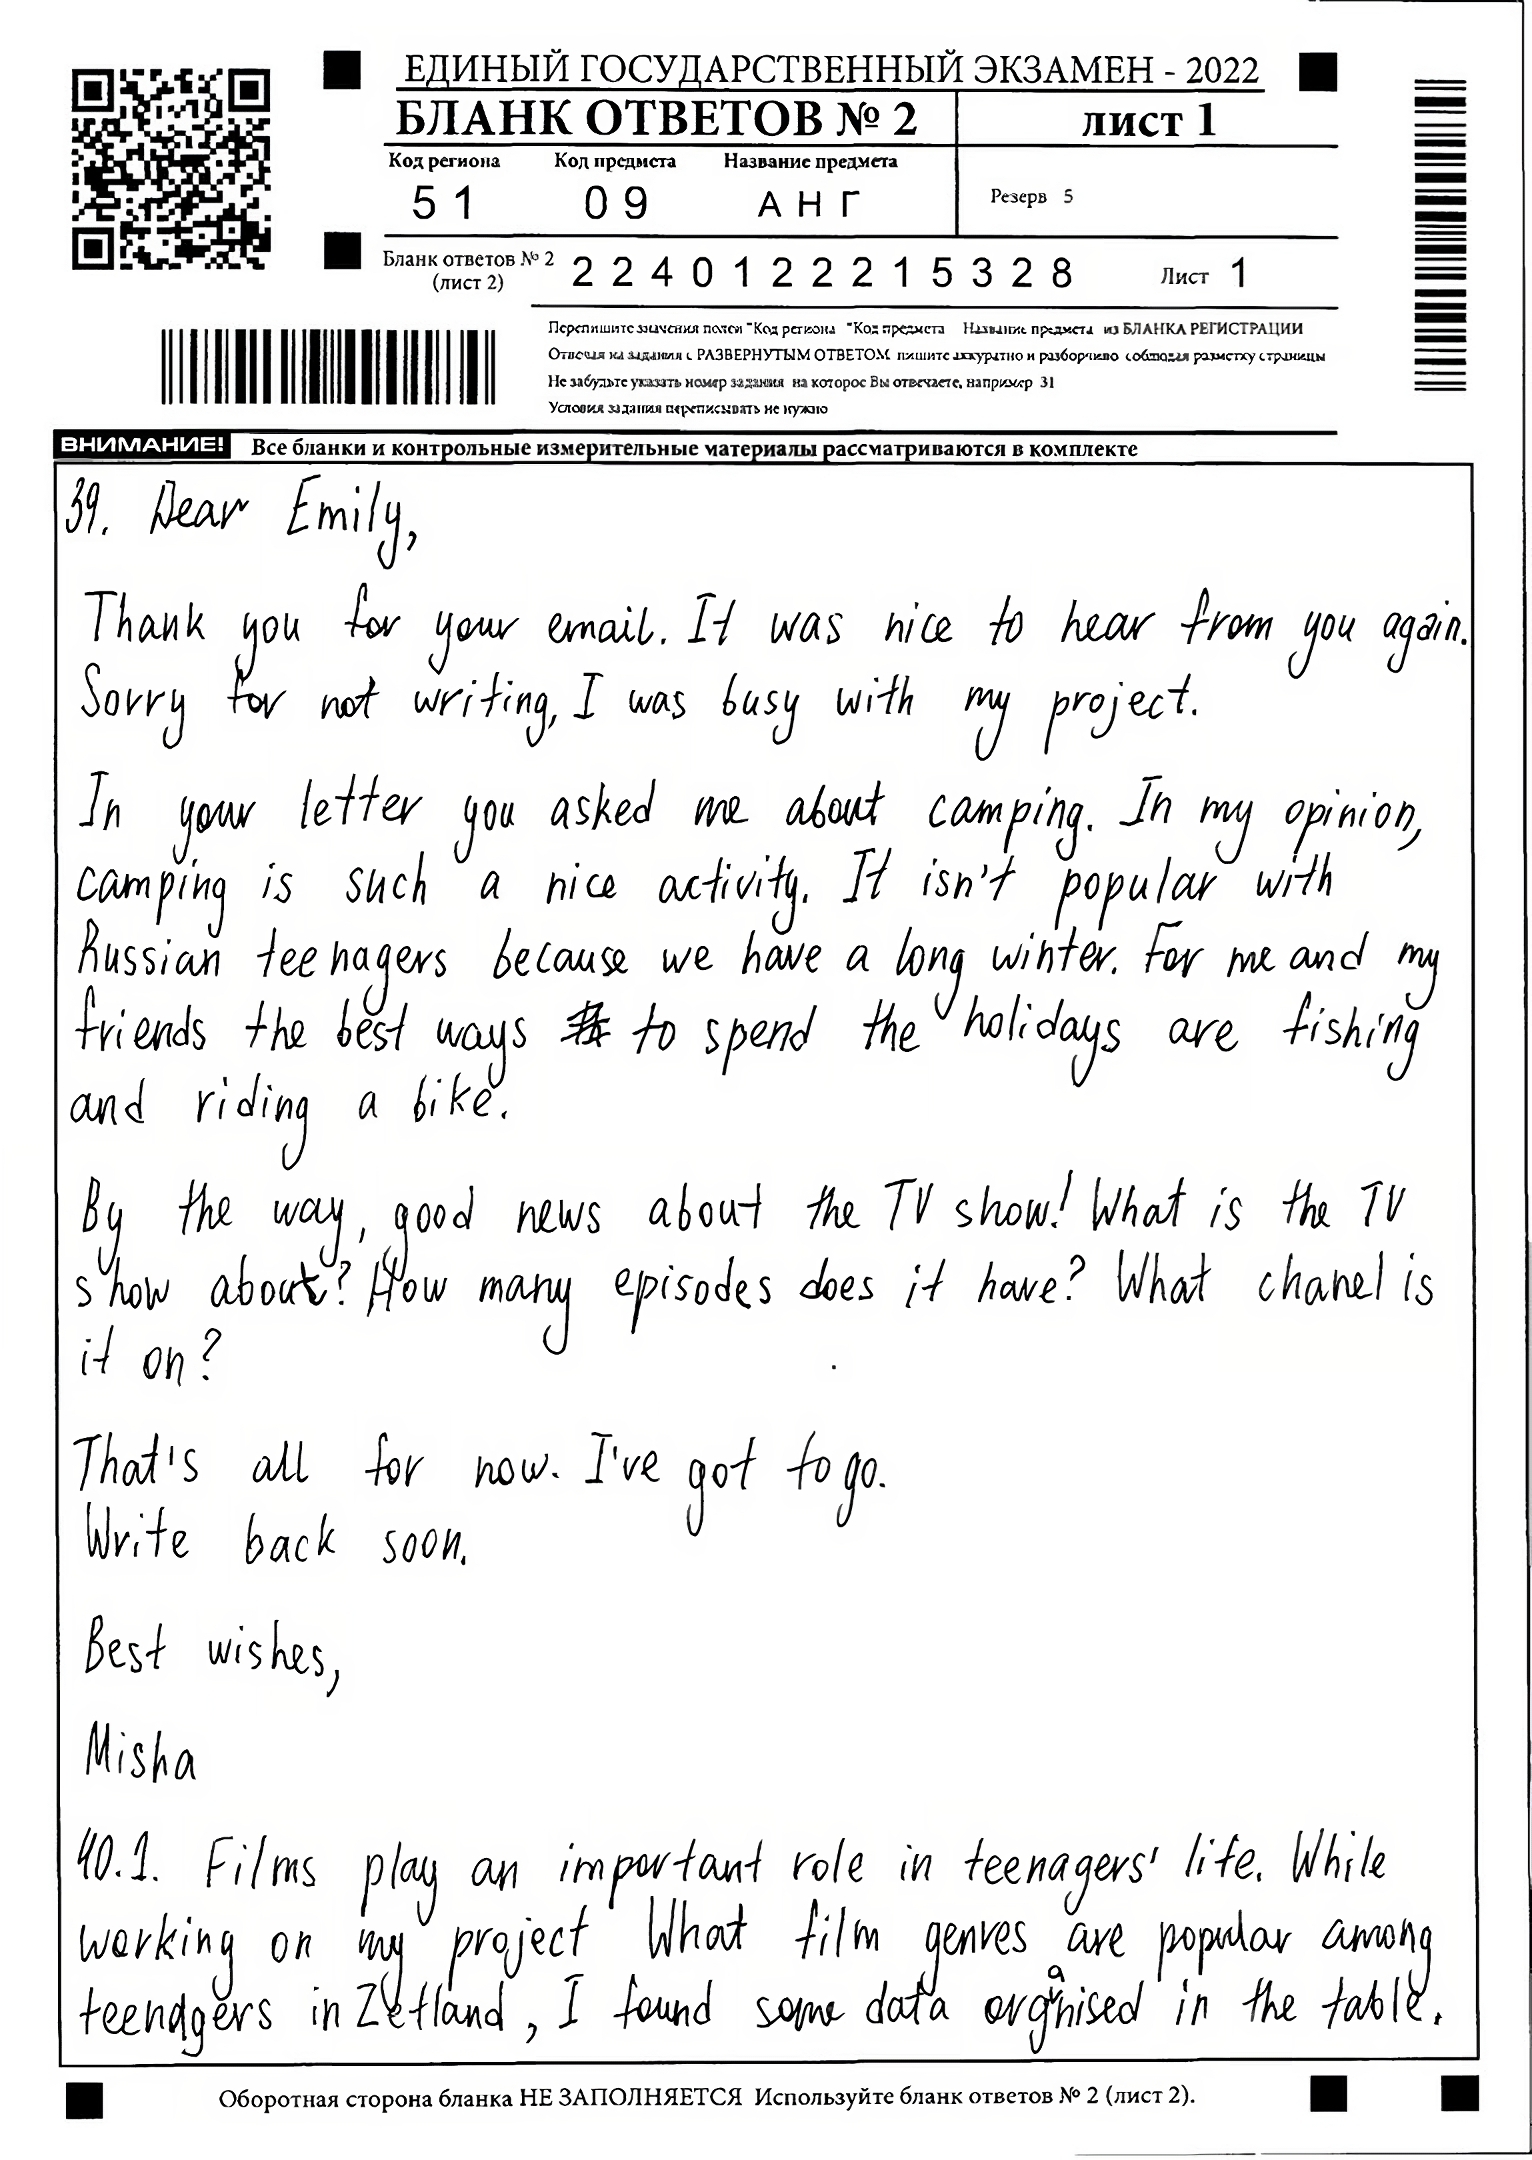 ЕДИНЫЙ ГОСУДАРСТВЕННЫЙ ЭКЗАМЕН - 2022
БЛАНК ОТВЕТОВ № 2 лист 1
Код региона Код предмета Название предмета
51 09 АНГ Резерв 5
Бланк ответов № 2 (лист 2) 2240122215328 Лист 1
Перепишите значения полей "Код региона "Код предмета Название предмета из БЛАНКА РЕГИСТРАЦИИ
Отвечая на задания с РАЗВЕРНУТЫМ ОТВЕТОМ пишите аккуратно и разборчиво соблюдая разметку страницы
Не забудьте указать номер задания на которое Вы отвечаете, например 31
Условия задания переписывать не нужно
ВНИМАНИЕ! Все бланки и контрольные измерительные материалы рассматриваются в комплекте
39. Dear Emily,
Thank you for your email. It was nice to hear from you again.
Sorry for not writing, I was busy with my project.
In your letter you asked me about camping. In my opinion,
camping is such a nice activity. It isn't popular with
Russian teenagers because we have a long winter. For me and my
friends the best ways to spend the holidays are fishing
and riding a bike.
By the way, good news about the TV show! What is the TV
show about? How many episodes does it have? What chanel is
it on?
That's all for now. I've got to go.
Write back soon.
Best wishes,
Misha
40.1. Films play an important role in teenagers' life. While
working on my project What film genres are popular among
teenagers in Zetland, I found some data organised in the table.
Оборотная сторона бланка НЕ ЗАПОЛНЯЕТСЯ Используйте бланк ответов № 2 (лист 2).